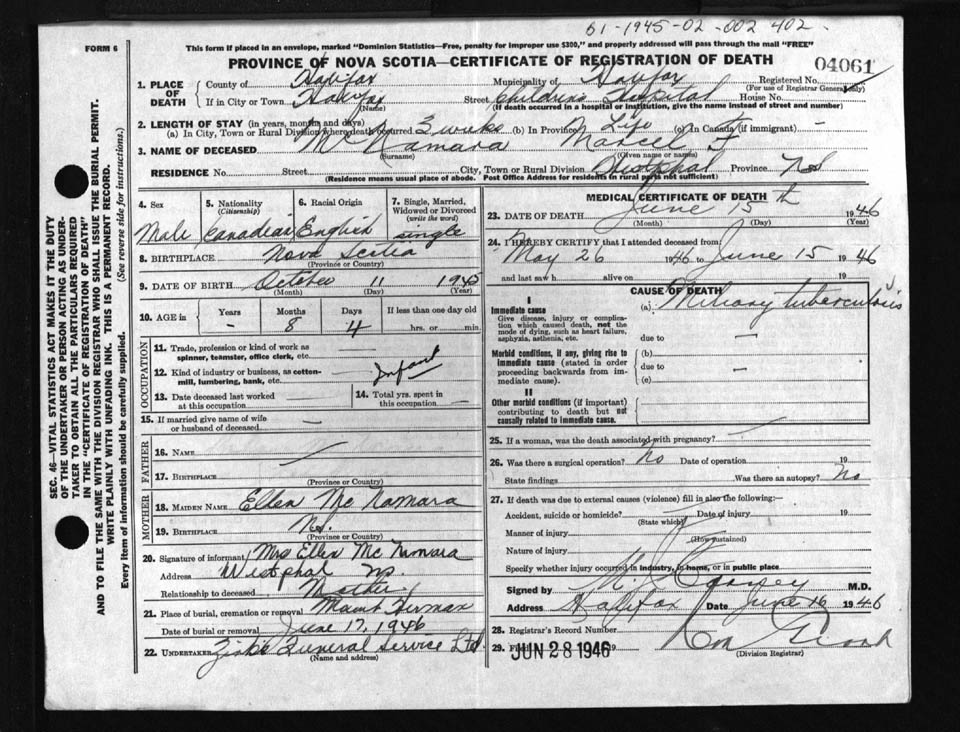 61-1945-02-002402
FORM 6
This form if placed in an envelope, marked "Dominion Statistics—Free, penalty for improper use $300," and properly addressed will pass through the mail "FREE"
PROVINCE OF NOVA SCOTIA—CERTIFICATE OF REGISTRATION OF DEATH
04061
1. PLACE OF DEATH
County of Halifax Municipality of Halifax Registered No.
(For use of Registrar General only)
If in City or Town Halifax Street Children's Hospital House No.
(Name) (If death occurred in a hospital or institution, give the name instead of street and number)
2. LENGTH OF STAY (in years, months and days)
(a) In City, Town or Rural Division where death occurred 3 weeks (b) In Province Life (c) In Canada (if immigrant) -
3. NAME OF DECEASED McNamara Marcel F
(Surname) (Given name or names)
RESIDENCE No. Street City, Town or Rural Division Westphal Province NS
(Residence means usual place of abode. Post Office Address for residents in rural parts not sufficient)
4. Sex
Male
5. Nationality
(Citizenship)
Canadian
6. Racial Origin
English
7. Single, Married,
Widowed or Divorced
(write the word)
single
8. BIRTHPLACE Nova Scotia
(Province or Country)
9. DATE OF BIRTH October 11 1945
(Month) (Day) (Year)
10. AGE in Years Months Days If less than one day old
- 8 4 hrs. or min.
OCCUPATION
11. Trade, profession or kind of work as
spinner, teamster, office clerk, etc.
12. Kind of industry or business, as cotton-
mill, lumbering, bank, etc.
Infant
13. Date deceased last worked
at this occupation
14. Total yrs. spent in
this occupation -
15. If married give name of wife
or husband of deceased -
FATHER
16. NAME
17. BIRTHPLACE
(Province or Country)
MOTHER
18. MAIDEN NAME Ellen McNamara
19. BIRTHPLACE N.S.
(Province or Country)
20. Signature of informant Mrs Ellen McNamara
Address Westphal NS.
Relationship to deceased Mother
21. Place of burial, cremation or removal Mount Herman
Date of burial or removal June 17, 1946
22. UNDERTAKER Funeral Service Ltd
(Name and address)
MEDICAL CERTIFICATE OF DEATH
23. DATE OF DEATH June 15th 1946
(Month) (Day) (Year)
24. I HEREBY CERTIFY that I attended deceased from:
May 26 1946 to June 15 1946
and last saw h alive on 19
CAUSE OF DEATH
I
Immediate cause
Give disease, injury or complica-
tion which caused death, not the
mode of dying, such as heart failure,
asphyxia, asthenia, etc.
(a) Miliary tuberculosis
due to -
Morbid conditions, if any, giving rise to
immediate cause (stated in order
proceeding backwards from im-
mediate cause).
(b)
due to -
(c)
II
Other morbid conditions (if important)
contributing to death but not
causally related to immediate cause.
25. If a woman, was the death associated with pregnancy?
26. Was there a surgical operation? No Date of operation 19
State findings Was there an autopsy? No
27. If death was due to external causes (violence) fill in also the following:—
Accident, suicide or homicide? Date of injury 19
(State which)
Manner of injury
(How sustained)
Nature of injury
Specify whether injury occurred in industry, in home, or in public place
Signed by M.D.
Address Halifax Date June 16 1946
28. Registrar's Record Number
29. Filed JUN 28 1946 19
(Division Registrar)
SEC. 46—VITAL STATISTICS ACT MAKES IT THE DUTY
OF THE UNDERTAKER OR PERSON ACTING AS UNDER-
TAKER TO OBTAIN ALL THE PARTICULARS REQUIRED
IN THE "CERTIFICATE OF REGISTRATION OF DEATH"
AND TO FILE THE SAME WITH THE DIVISION REGISTRAR WHO SHALL ISSUE THE BURIAL PERMIT.
WRITE PLAINLY WITH UNFADING INK. THIS IS A PERMANENT RECORD.
Every item of information should be carefully supplied. (See reverse side for instructions.)